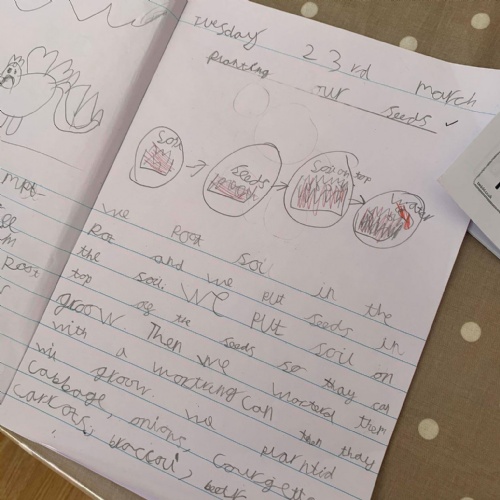 Tuesday 23rd march
Planting our seeds
Soil
Seeds
Soil on top
water
we poot soil in the
Pot and we put seeds in
the soil. We put soil on
top of the seeds so thay can
groow. Then we woterd them
with a wortringcan then thay
wil groow. we plarntid
cabbage, onions, courgett
carrots, broccoli,